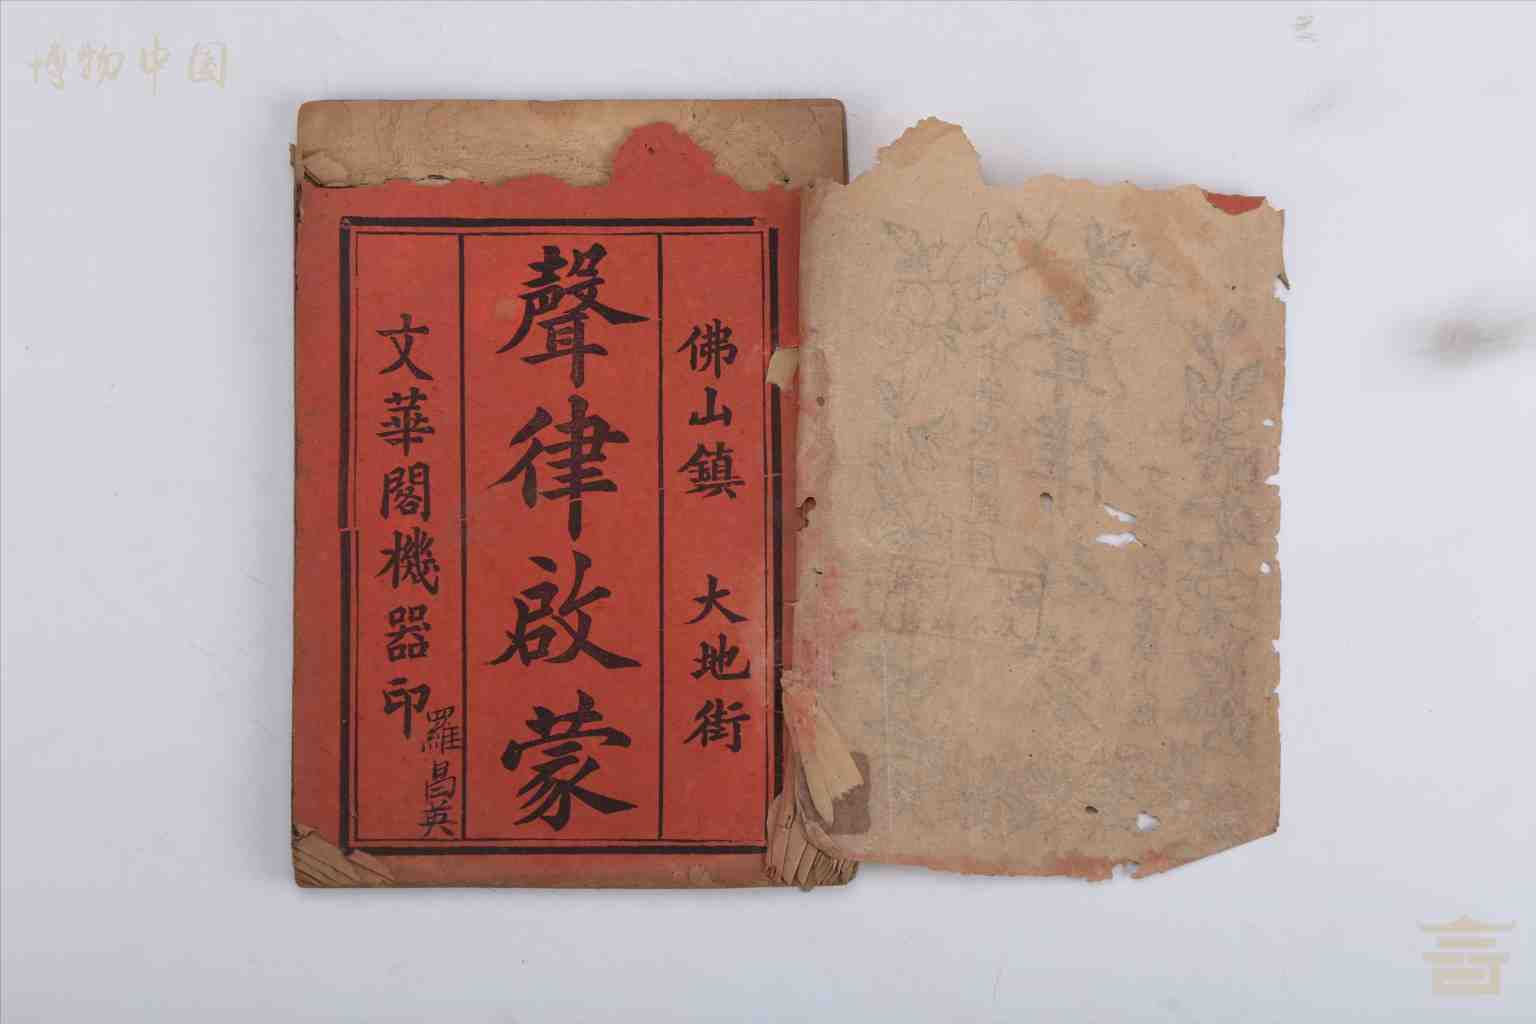 博物中国
佛山鎮 大地街
聲律啟蒙
文華閣機器印
羅昌英